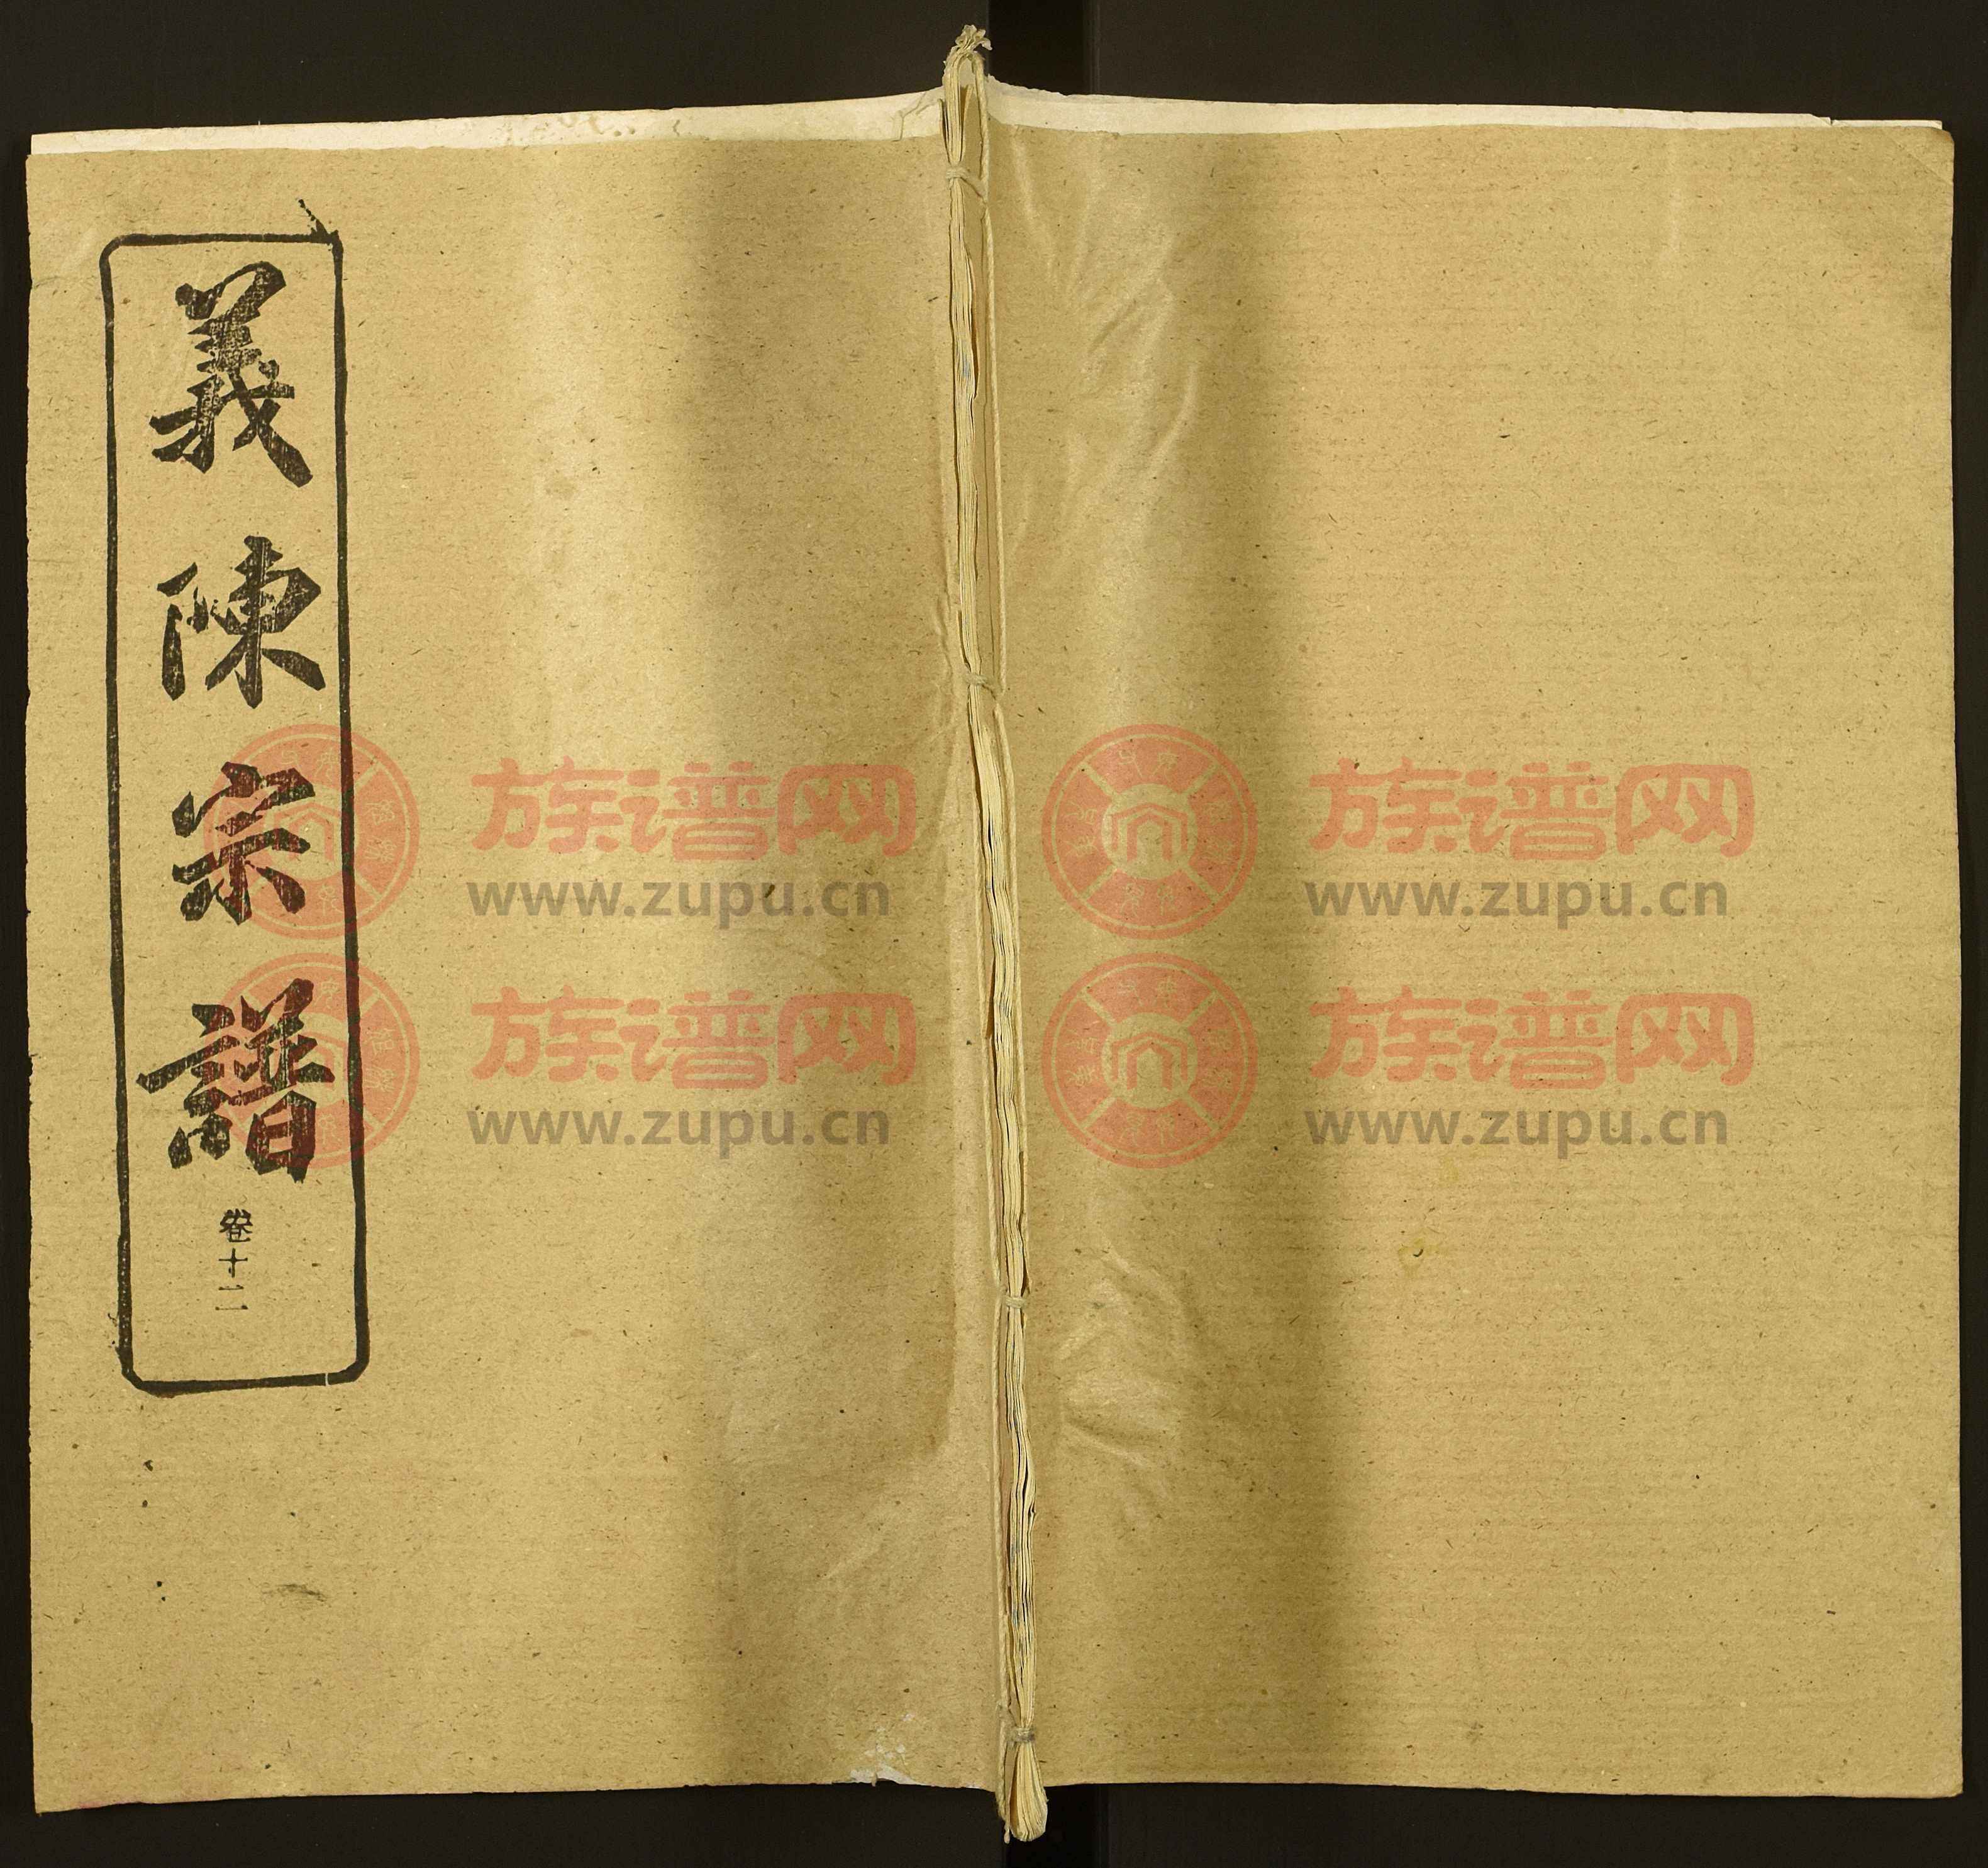 義陳宗譜
卷十二
族谱网
www.zupu.cn
族谱网
www.zupu.cn
族谱网
www.zupu.cn
族谱网
www.zupu.cn